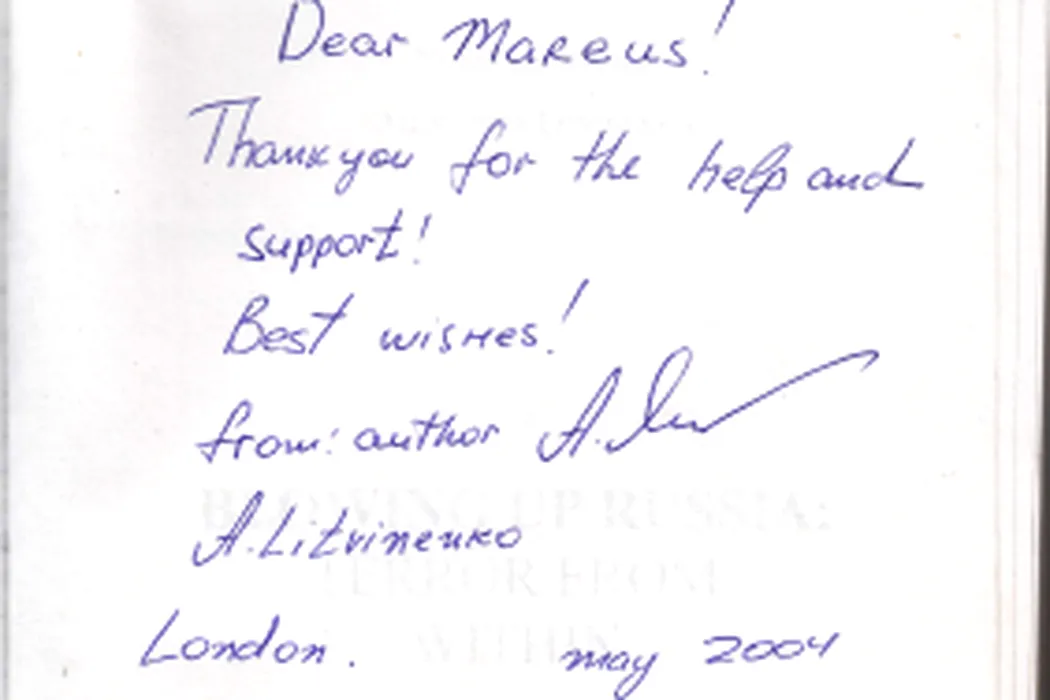 Dear Marcus!
Thank you for the help and
support!
Best wishes!
from: author
A. Litvinenko
BLOWING UP RUSSIA:
TERROR FROM
WITHIN
London. may 2004